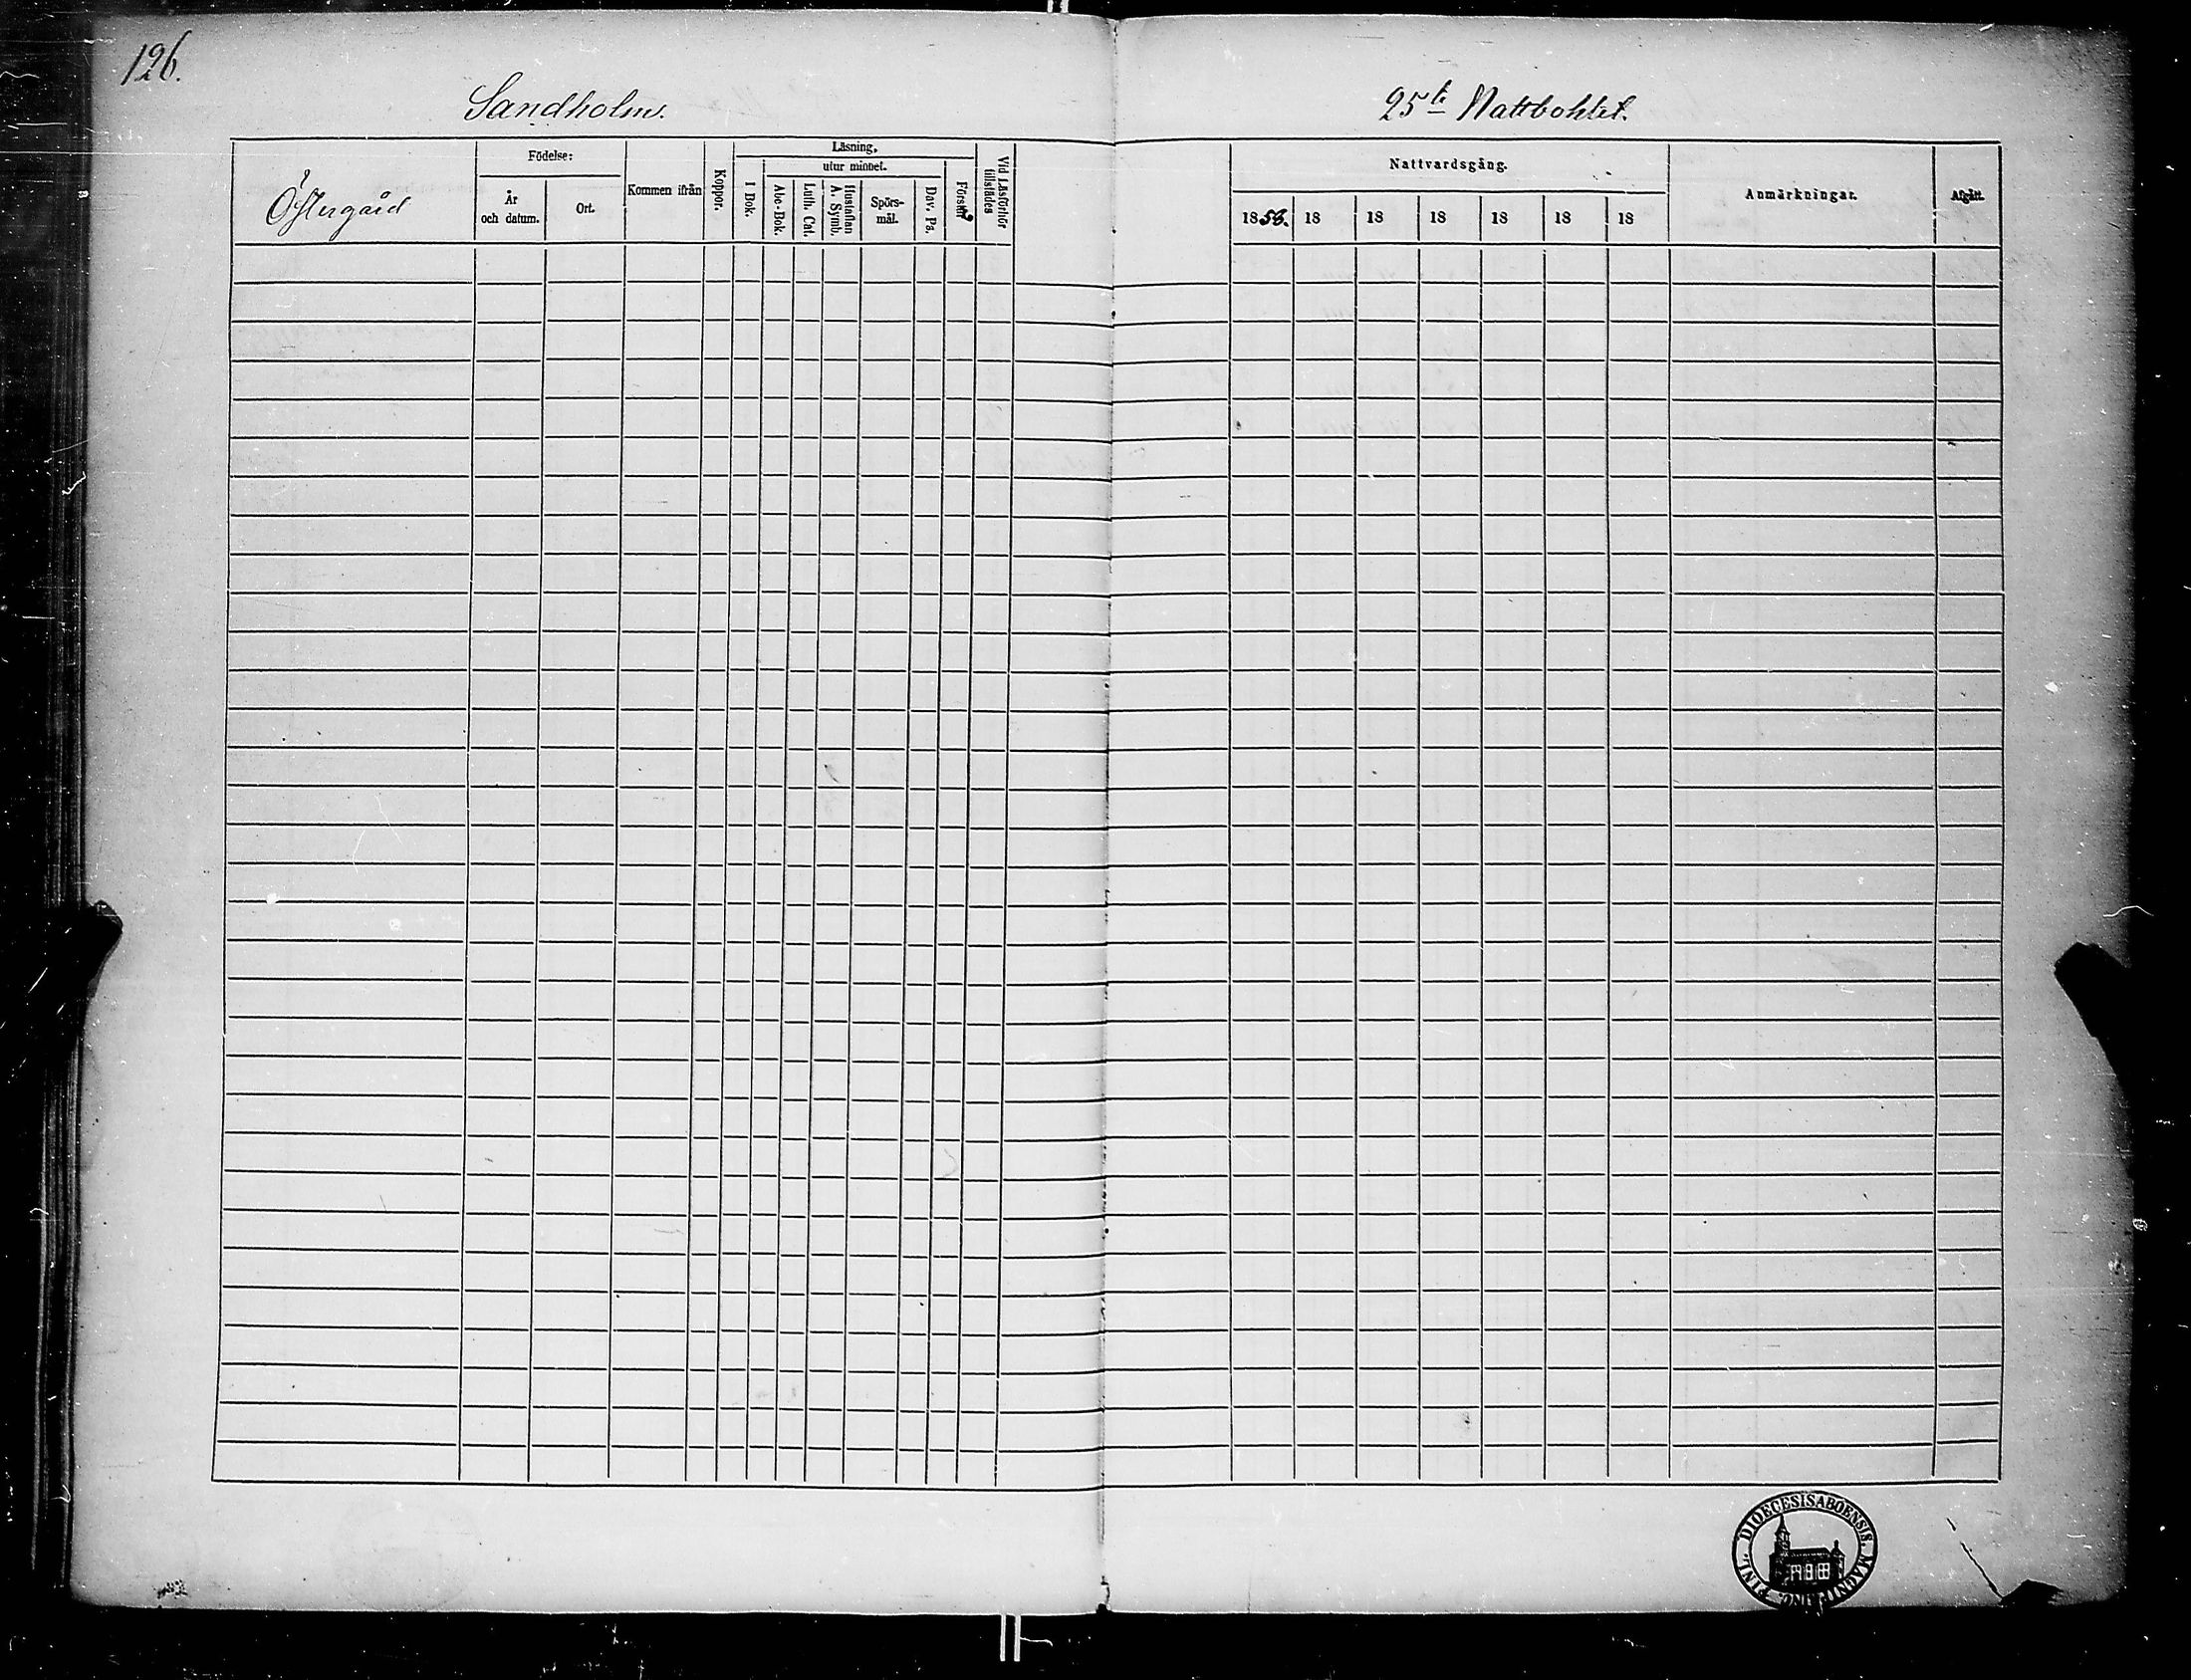 126.
Sandholm.
25te Nattbohlet.
Östergård
Födelse:
År och datum.
Ort.
Kommen ifrån
Koppor.
Läsning.
utur minnet.
I Bok.
Abc-Bok.
Luth. Cat.
Hustaflan A. Symb.
Spörs-mål.
Dav. Ps.
Förstår
Vid Läsförhör tillstädes
Nattvardsgång.
1856. 18 18 18 18 18 18
Anmärkningar.
Afgått.
DIOECESIS ABOENSIS. MAGNI PRINC. FINL.